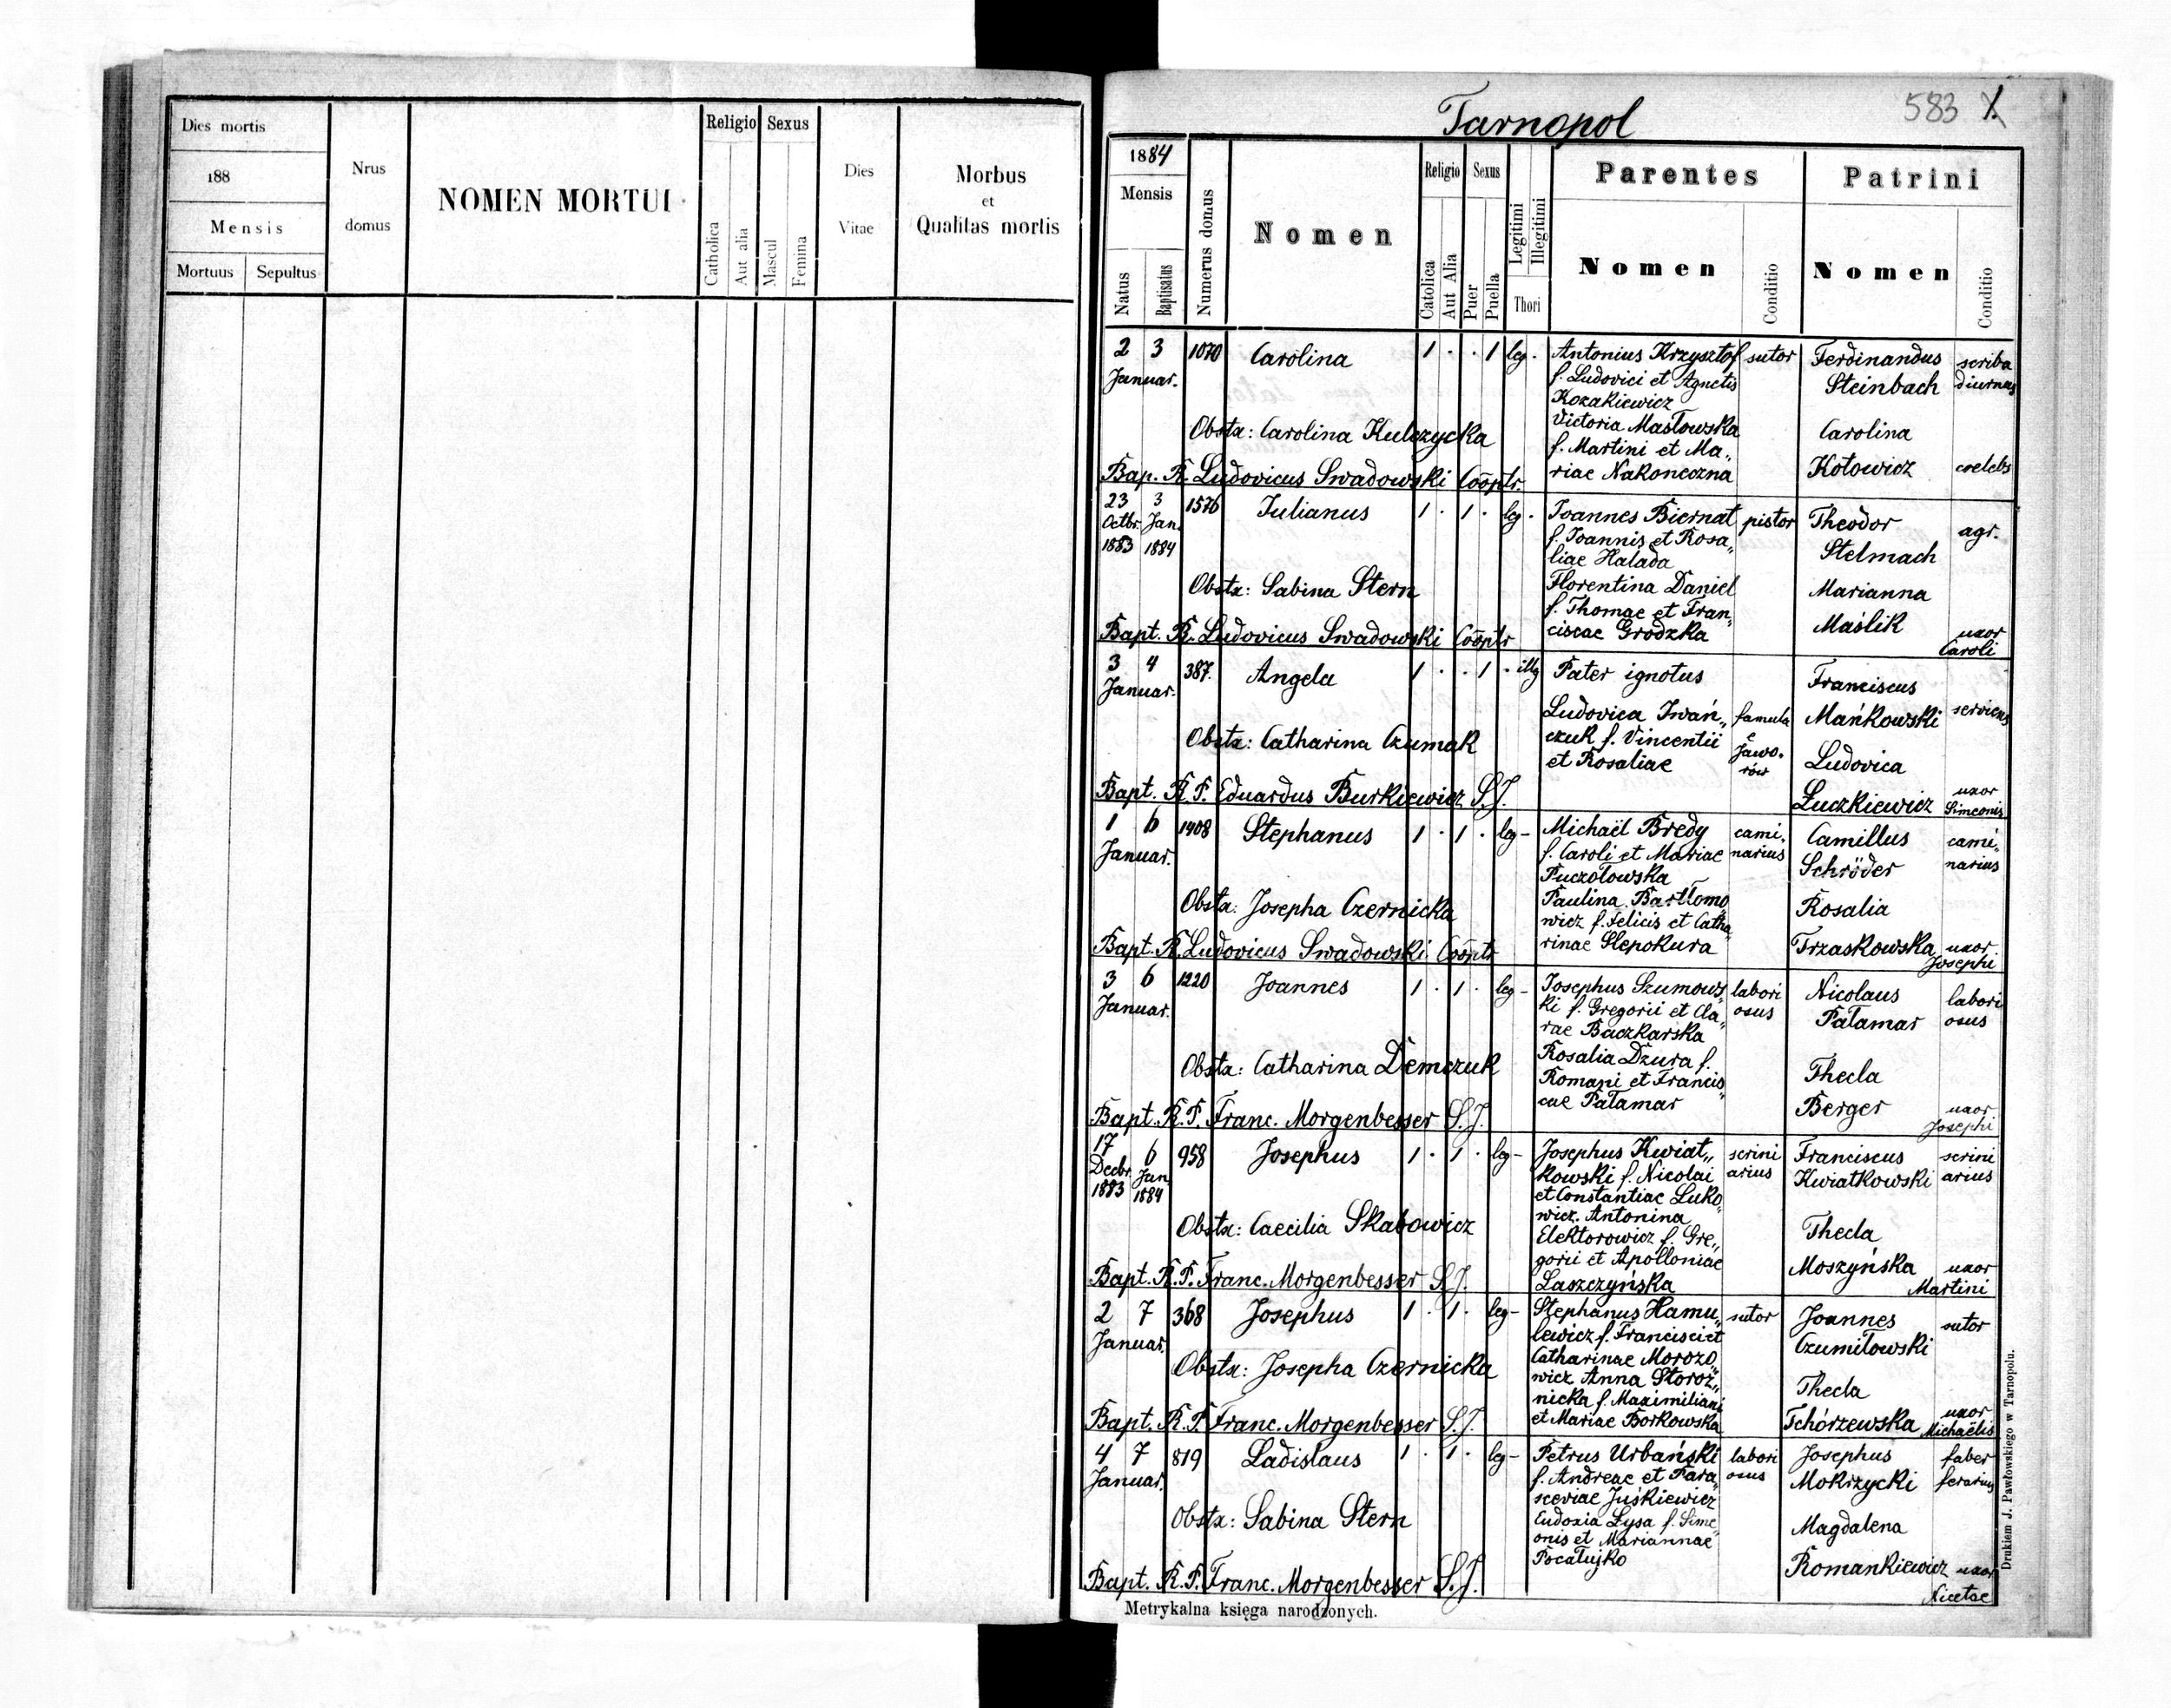 Dies mortis
188
Mensis
Mortuus Sepultus
Nrus
domus
NOMEN MORTUI
Religio Sexus
Catholica
Aut alia
Mascul
Femina
Dies
Vitae
Morbus
et
Qualitas mortis
Tarnopol
583 1.
1884
Mensis
Natus
Baptisatus
Numerus domus
Nomen
Religio Sexus
Catolica
Aut Alia
Puer
Puella
Legitimi
Illegitimi
Thori
Parentes
Nomen
Conditio
Patrini
Nomen
Conditio
2 3 1070 Carolina 1 . . 1 leg. Antonius Krzysztof sutor Ferdinandus scriba
Januar. f. Ludovici et Agnetis Steinbach diurnus
Kozakiewicz
Obstx: Carolina Kulczycka Victoria Masłowska Carolina
f. Martini et Ma„
Bap. R. Ludovicus Swadowski Cooptr. riae Nakoneczna Kotowicz coelebs
23 3 1576 Julianus 1 . 1 . leg. Joannes Biernat pistor Theodor agr.
Octbr. Jan. f. Joannis et Rosa„ Stelmach
1883 1884 liae Halada
Obstx: Sabina Stern Florentina Daniel Marianna
f. Thomae et Fran„
Bapt. R. Ludovicus Swadowski Cooptr ciscae Grodzka Maślik uxor
Caroli
3 4 387. Angela 1 . . 1 . illg Pater ignotus Franciscus
Januar. Ludovica Iwań„ famula Mańkowski serviens
Obstx: Catharina Czumak czuk f. Vincentii e Jawo„
et Rosaliae rów Ludovica
Bapt. R. P. Eduardus Burkiewicz S.J. Łuczkiewicz uxor
Simeonis
1 6 1408 Stephanus 1 . 1 . leg - Michaël Bredy cami„ Camillus cami„
Januar. f. Caroli et Mariae narius Schröder narius
Puczołowska
Obstx: Josepha Czernicka Paulina Bartłomo„ Rosalia
wicz f. Felicis et Catha„
Bapt. R. Ludovicus Swadowski Cooptr rinae Slepokura Trzaskowska uxor
Josephi
3 6 1220 Joannes 1 . 1 . leg - Josephus Szumows„ labori Nicolaus labori
Januar. ki f. Gregorii et Cla„ osus Pałamar osus
rae Baczkarska
Obstx: Catharina Demczuk Rosalia Dzura f.
Romani et Francis„ Thecla
cae Pałamar
Bapt. R. P. Franc. Morgenbesser S.J. Berger uxor
Josephi
17 6 958 Josephus 1 . 1 . leg - Josephus Kwiat„ scrini Franciscus scrini
Decbr. Jan. kowski f. Nicolai arius Kwiatkowski arius
1883 1884 et Constantiae Luko„
Obstx: Caecilia Skabowicz wicz. Antonina Thecla
Elektorowicz f. Gre„
gorii et Apolloniae Moszyńska uxor
Bapt. R. P. Franc. Morgenbesser S.J. Laszczyńska Martini
2 7 368 Josephus 1 . 1 . leg - Stephanus Hamu„ sutor Joannes sutor
Januar. lewicz f. Francisci et Czumiłowski
Obstx: Josepha Czernicka Catharinae Morozo„
wicz Anna Storoż„ Thecla
nicka f. Maximiliani
Bapt. R. P. Franc. Morgenbesser S.J. et Mariae Borkowska Tchórzewska uxor
Michaëlis
4 7 819 Ladislaus 1 . 1 . leg - Petrus Urbański labori Josephus faber
Januar. f. Andreae et Para„ osus Mokrzycki ferarius
sceviae Juśkiewicz
Obstx: Sabina Stern Eudoxia Lysa f. Sime„ Magdalena
onis et Mariannae
Pocałujko Romankiewicz uxor
Bapt. R. P. Franc. Morgenbesser S.J. Nicetae
Metrykalna księga narodzonych.
Drukiem J. Pawłowskiego w Tarnopolu.